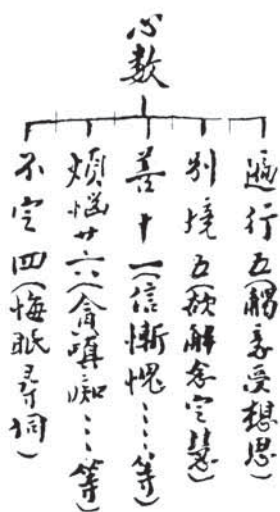 心數
遍行五(觸意受想思)
別境五(欲解念定慧)
善十一(信慚愧……等)
煩惱廿六(貪瞋痴……等)
不定四(悔眠尋伺)